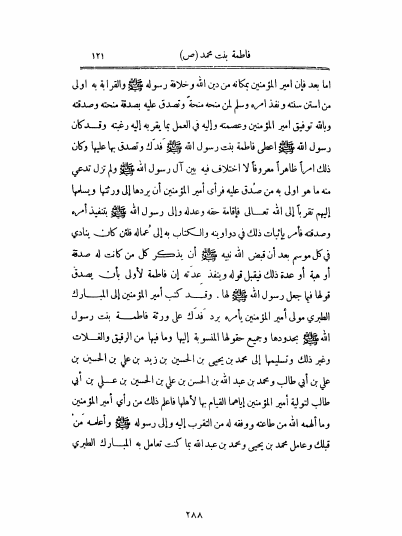 فاطمة بنت محمد (ص) ١٢١
اما بعد فإن امير المؤمنين بمكانه من دين الله وخلافة رسوله ﷺ والقرابة به اولى
من استن سنته ونفذ امره وسلم لمن منحه منحة وتصدق عليه بصدقة منحته وصدقته
وبالله توفيق امير المؤمنين وعصمته وإليه في العمل بما يقربه إليه رغبته وقد كان
رسول الله ﷺ اعطى فاطمة بنت رسول الله ﷺ فدك وتصدق بها عليها وكان
ذلك امراً ظاهراً معروفاً لا اختلاف فيه بين آل رسول الله ﷺ ولم تزل تدعي
منه ما هو اولى به من صدق عليه فرأى أمير المؤمنين أن يردها إلى ورثتها ويسلمها
إليهم تقرباً إلى الله تعالى بإقامة حقه وعدله وإلى رسول الله ﷺ بتنفيذ أمره
وصدقته فأمر بإثبات ذلك في دواوينه والكتاب به إلى عماله فلئن كان ينادي
في كل موسم بعد أن قبض الله نبيه ﷺ أن يذكر كل من كانت له صدقة
أو هبة أو عدة ذلك فيقبل قوله وينفذ عدته إن فاطمة لأولى بأن يصدق
قولها فيما جعل رسول الله ﷺ لها . وقد كتب أمير المؤمنين إلى المبارك
الطبري مولى أمير المؤمنين يأمره برد فدك على ورثة فاطمة بنت رسول
الله ﷺ بحدودها وجميع حقوقها المنسوبة إليها وما فيها من الرقيق والغلات
وغير ذلك وتسليمها إلى محمد بن يحيى بن الحسين بن زيد بن علي بن الحسين بن
علي بن أبي طالب ومحمد بن عبد الله بن الحسن بن علي بن الحسين بن علي بن أبي
طالب لتولية أمير المؤمنين إياهما القيام بها لأهلها فاعلم ذلك من رأي أمير المؤمنين
وما ألهمه الله من طاعته ووفقه له من التقرب إليه وإلى رسوله ﷺ وأعلمه من
قبلك وعامل محمد بن يحيى ومحمد بن عبد الله بما كنت تعامل به المبارك الطبري
٢٨٨